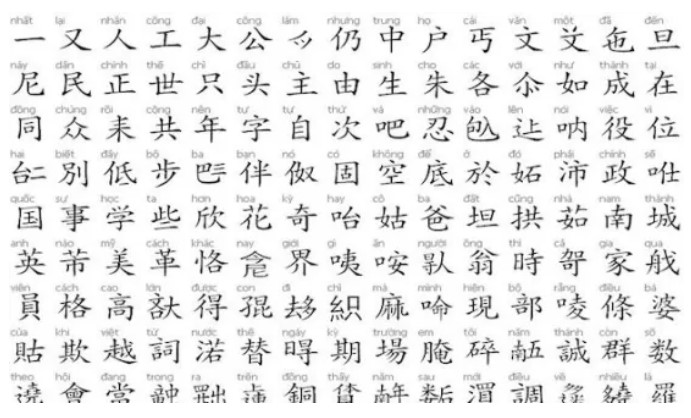 nhất lại nhân công đại công làm nhưng trung họ cái văn một đã đến
一 又 人 工 大 公 𫜵 仍 中 户 丐 文 𠬠 㐌 旦
này dân chính thế chỉ đầu chủ do sinh cho các như thành tại
尼 民 正 世 只 头 主 由 生 朱 各 如 成 在
đồng chúng rồi cộng nên tự tự thứ và những vào lên nói việc vị
同 众 耒 共 年 字 自 次 吧 忍 呐 役 位
hai biết đây bộ ba bạn nó cố không để ở đó phải chính sẽ
𠄩 別 低 步 𠀧 伴 伮 固 空 底 於 妬 沛 政
quốc sự học ta hơn hoa kỳ hay cô ba đất cũng nhà nam thành
国 事 学 些 欣 花 奇 咍 姑 爸 坦 拱 茹 南 城
anh nào mỹ cách khác nay giới gì ấn người ông thì cả gia qua
英 芇 美 革 恪 界 咦 咹 翁 時 哿 家
viên cách cao lớn được con đi chỉ mà mình hiện bộ rằng điều bà
員 格 高 得 𠫾 織 麻 現 部 條 婆
của khi việt từ nước thế ngày kỳ trường em tôi năm thành còn số
𧵑 欺 越 詞 渃 替 期 場 腌 碎 𠄼 誠 群 数
theo hội đang trong ra trên đồng thấy năm sau mới điều về nhiều là
遶 會 當 銅 調 饒 羅